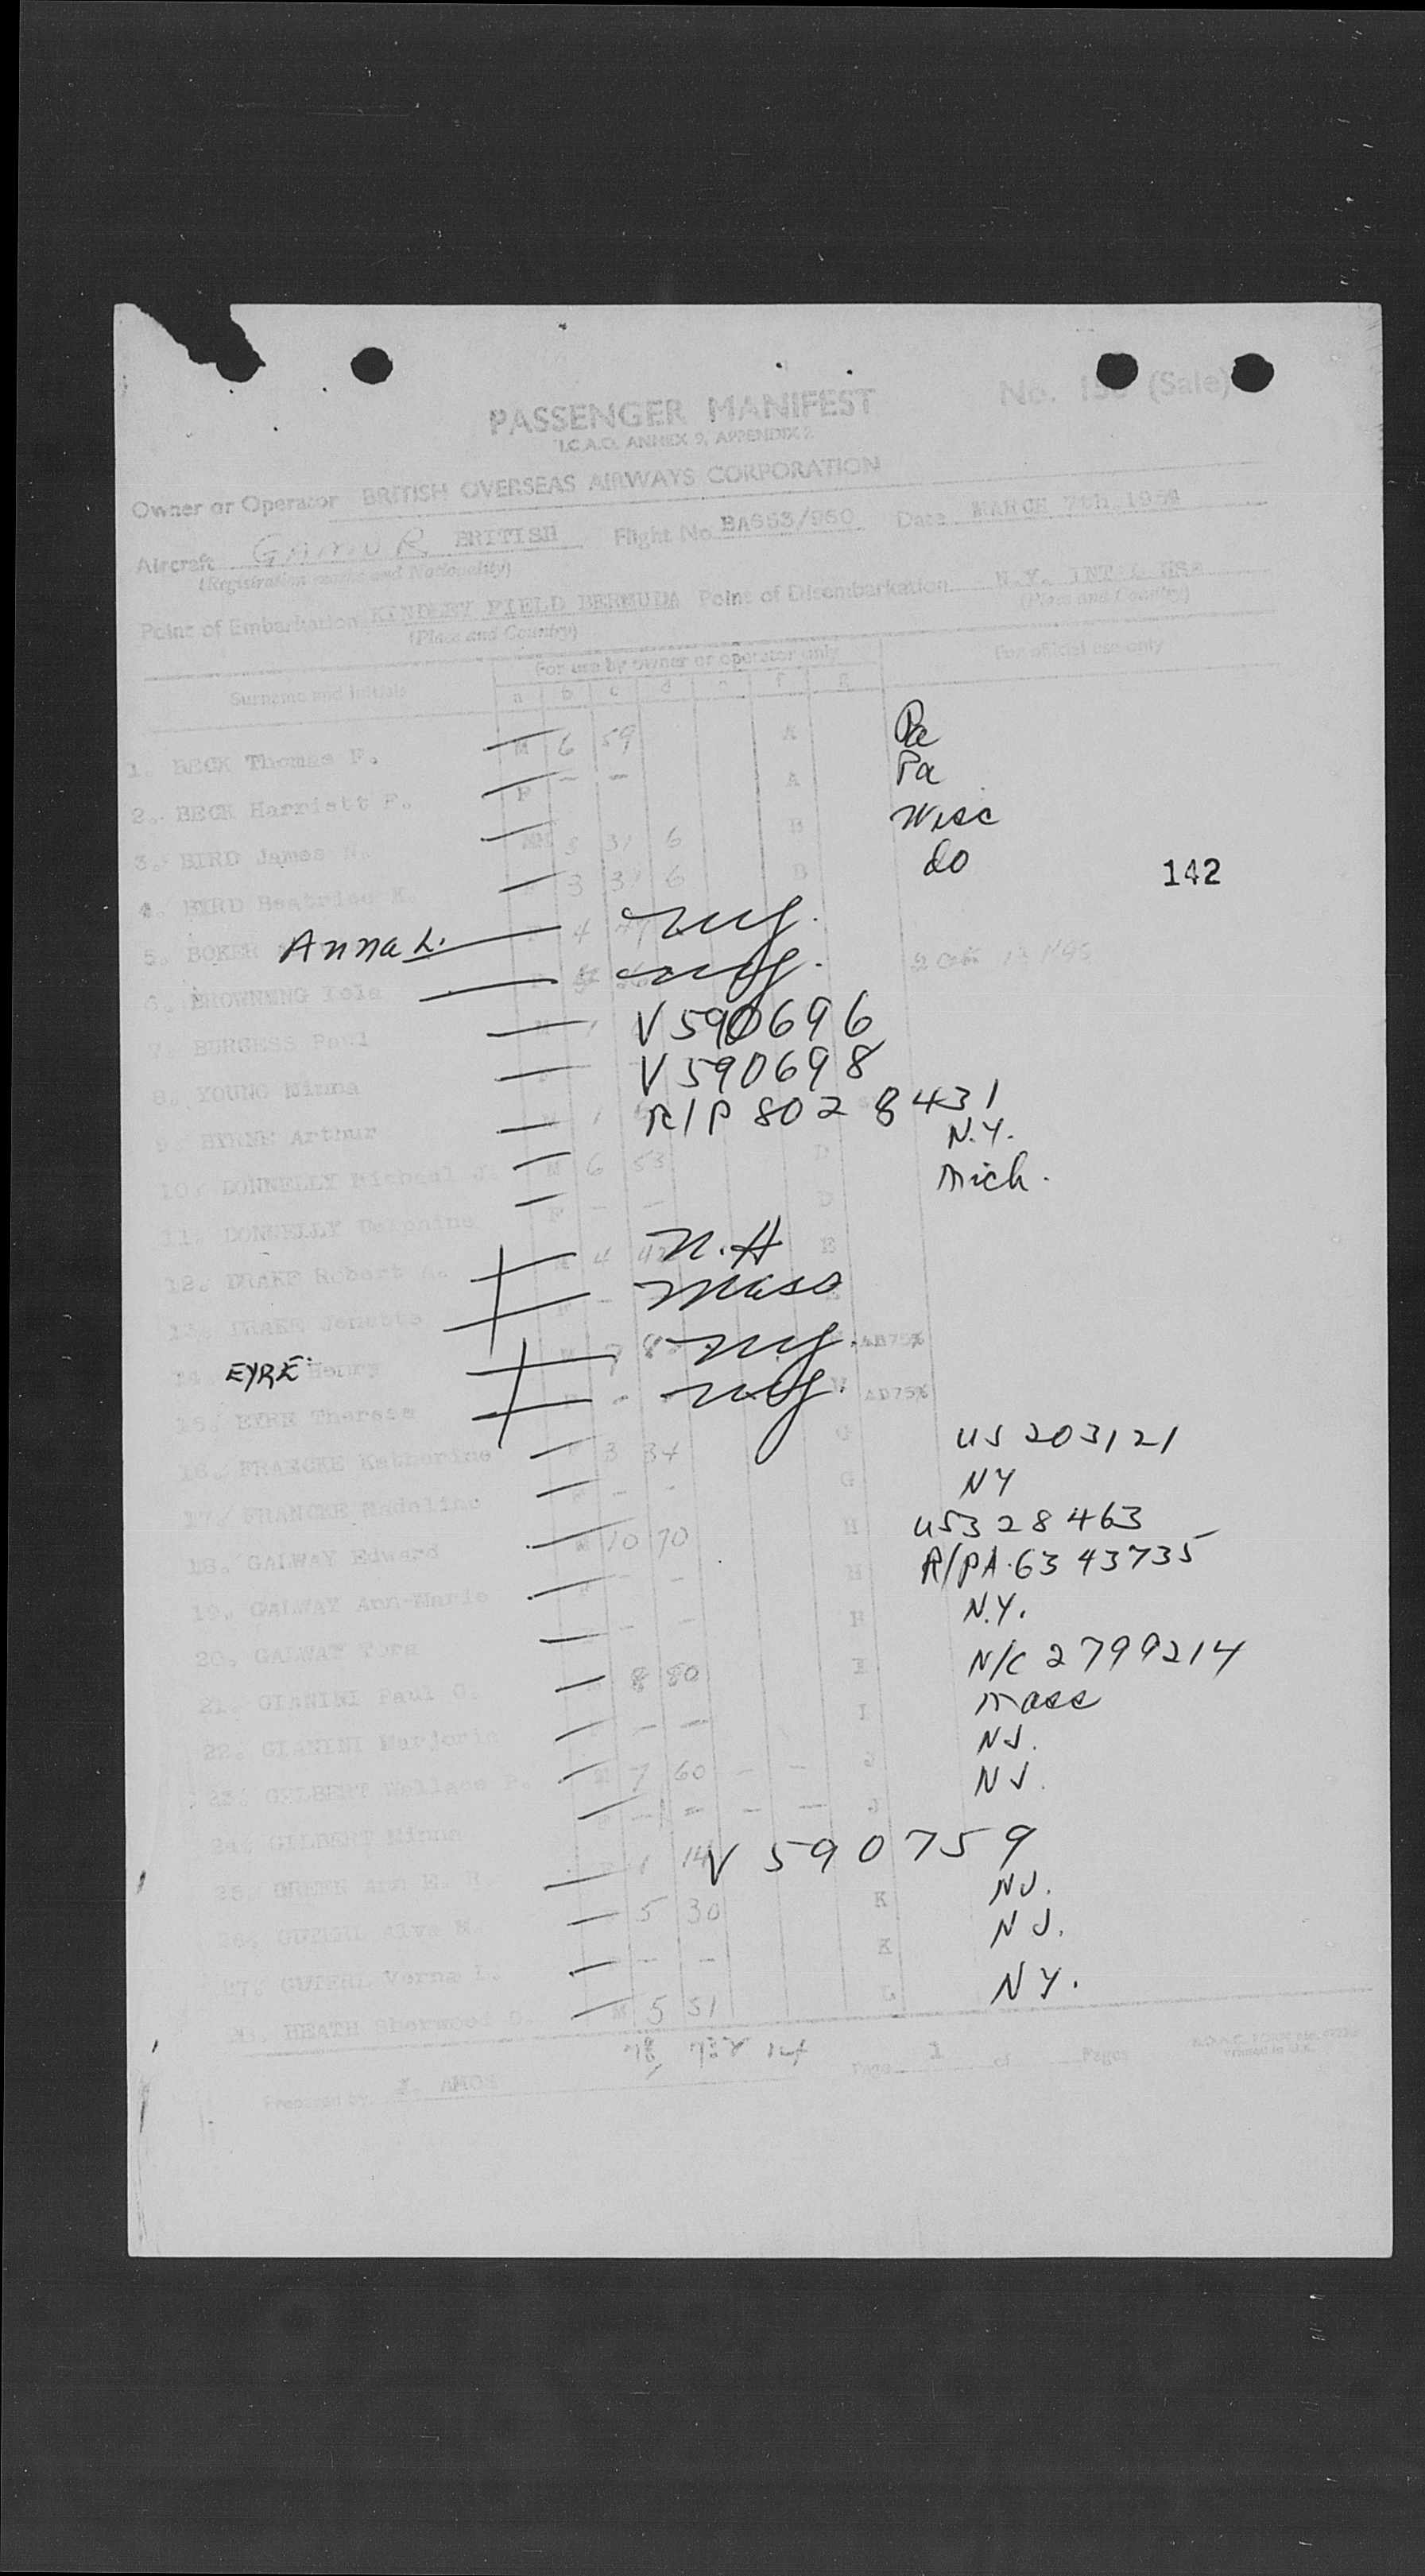 No. (Sale)
PASSENGER MANIFEST
I.C.A.O. ANNEX 9, APPENDIX 2
Owner or Operator BRITISH OVERSEAS AIRWAYS CORPORATION
Aircraft BRITISH Flight No BA653/950 Date MARCH 7th
(Registration marks and Nationality)
Point of Embarkation KINDLEY FIELD BERMUDA Point of Disembarkation N.Y. INT'L USA
(Place and Country) (Place and Country)
For use by owner or operator only For official use only
Surname and Initials a b c d e f g
1. BECK Thomas F. M 6 59 A Pa
2. BECK Harriett F. F — — A Pa
3. BIRD James N. 3 31 6 B Wisc
4. BIRD Beatrice 3 31 6 B do
142
5. BOKER Anna L. 4 47 NY.
6. BROWNING Iola NY.
7. BURGESS Paul V590696
8. YOUNG Minna V590698
9. BYRNE Arthur M 1 R/P 8028431
10. DONNELLY Michael J. M 6 53 D N.Y.
11. DONNELLY F — — D Mich.
12. DRAKE Robert 4 42 N.H E
13. DRAKE Jenette F — Mass
14. EYRE Henry M 7 NY. AD75%
15. EYRE Theresa F - NY. AD75%
16. FRAECKE Katherine F 3 34 G US 203121
17. FRANCKE Madeline - - G NY
18. GALWAY Edward M 10 70 H US328463
19. GALWAY Ann-Marie F - - H R/PA.6343735
20. GALWAY Tora - - H N.Y.
21. GIANINI Paul G. 8 80 I N/C 2799214
22. GIANINI Marjorie — — I Mass
23. GILBERT Wallace P. 7 60 - - J NJ.
24. GILBERT Minna — — — J NJ.
25. GREEN Ann E. 1 14 V 590759
26. GUTERL Alva 5 30 K NJ.
27. GUTERL Verna L. - - K NJ.
28. HEATH Sherwood M 5 51 L NY.
78
Prepared by AMOS Page 1 of Pages